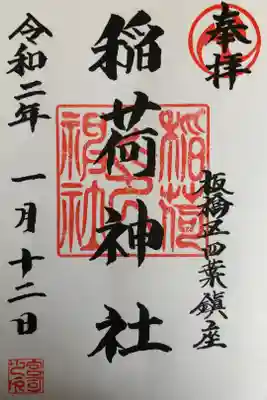 奉拝
板橋区四葉鎮座
稲荷神社
令和二年 一月十二日
稲荷
神社